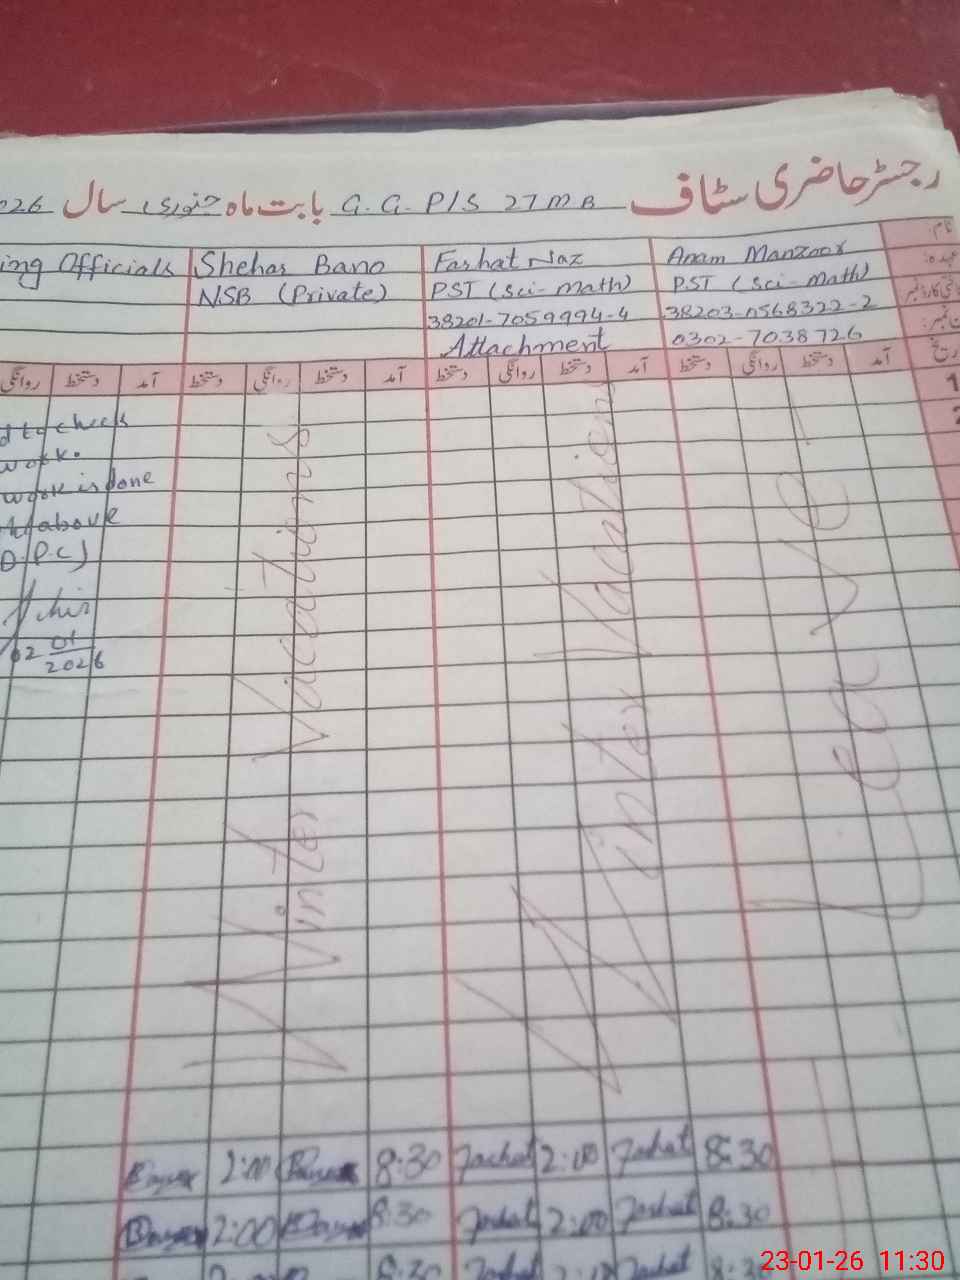 رجسٹر حاضری سٹاف G.G.P/S 27 MB بابت ماہ جنوری سال 026
نام:
عہدہ:
ing Officials Shehar Bano Farhat Naz Anam Manzoor
NSB (Private) PST (Sci-Math) PST (Sci-Math)
38201-7059994-4 38203-0568322-2
Attachment 0302-7038726
آمد دستخط روانگی دستخط آمد دستخط روانگی دستخط آمد دستخط روانگی دستخط آمد دستخط روانگی
1
2
d to check
work.
work is done
above
D.P.C)
02 01
2026
Winter Vacations
Winter Vacations
Leave
2:00 8:30 Farhat 2:00 Farhat 8:30
2:00 8:30 Farhat 2:00 Farhat 8:30
8:30
23-01-26 11:30